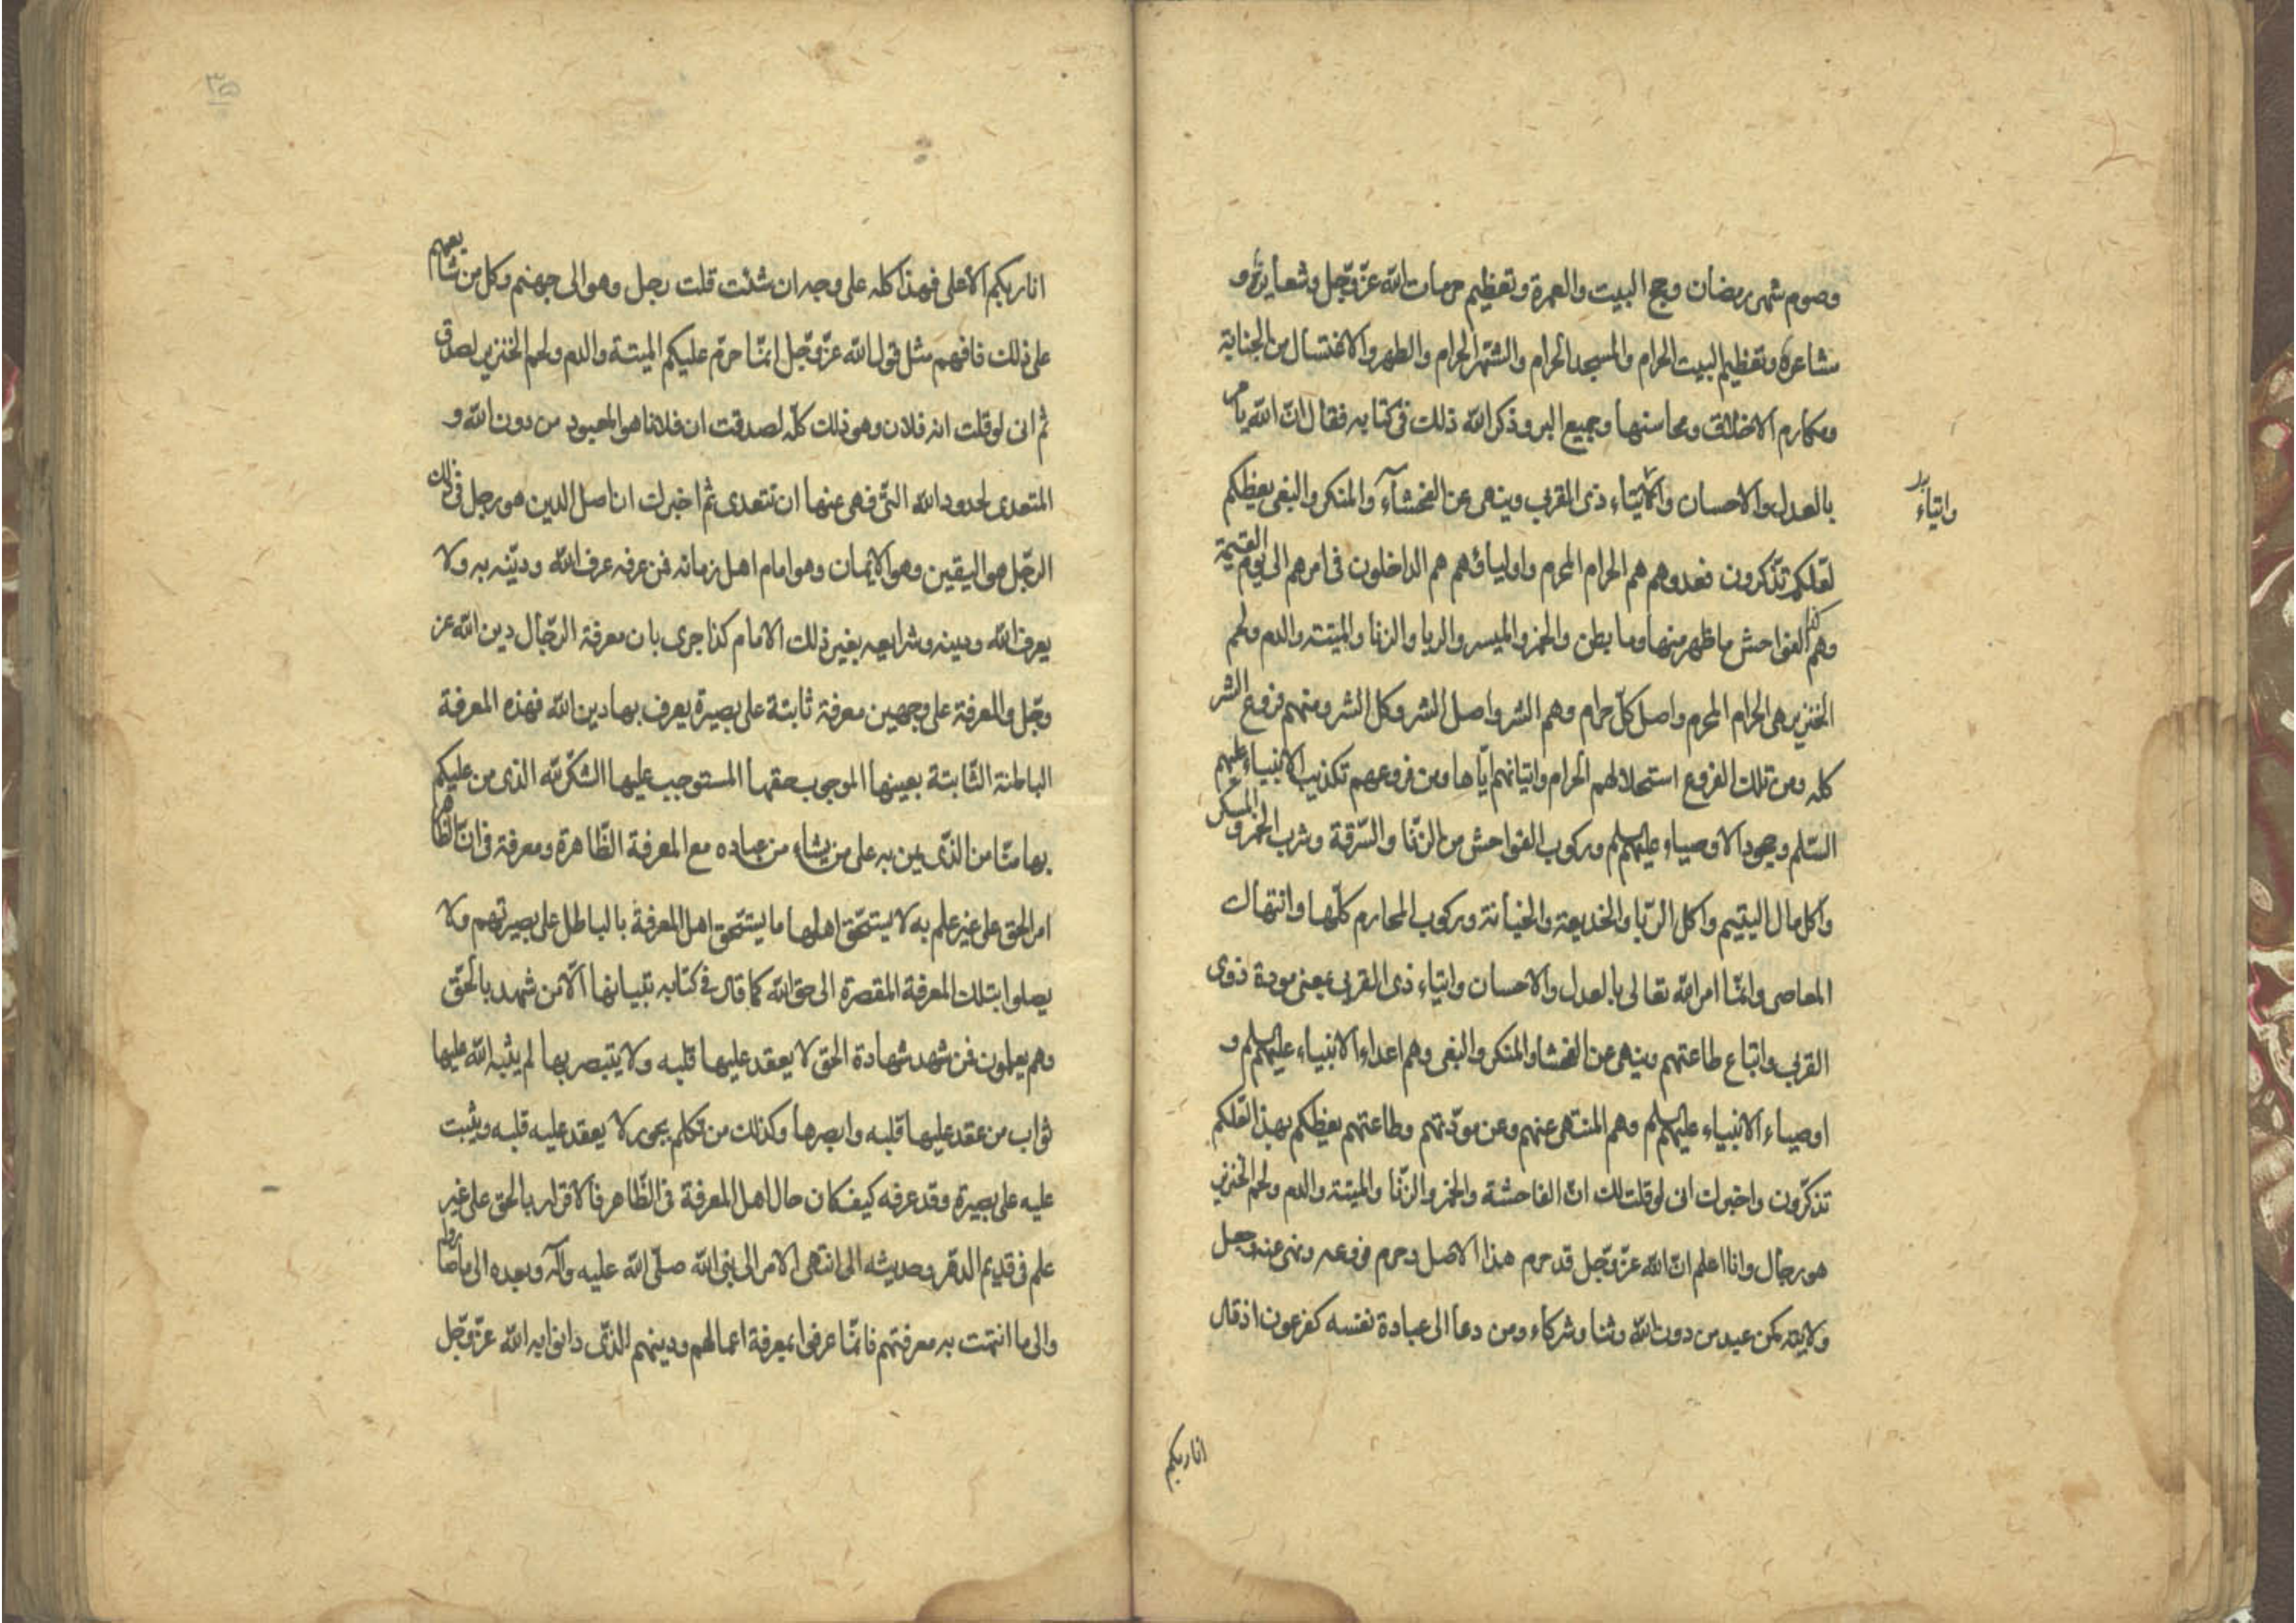 وصوم شهر رمضان وحج البيت والعمرة وتعظيم حرمات الله عزّ وجّل وشعايره و
مشاعره وتعظيم البيت الحرام والمسجد الحرام والشهر الحرام والطهر والاغتسال من الجنابة
ومكارم الاخلاق ومحاسنها وجميع البر وذكر الله ذلك فى كتابه فقال انّ الله يامر
بالعدل والاحسان وايتاء ذى القربى وينهى عن الفحشآء والمنكر والبغى يعظكم
وايتاء
لعلكم تذّكرون فعدوهم هم الحرام المحرم واوليائهم هم الداخلون فى امرهم الى يوم القيمة
وهم الفواحش ما ظهر منها وما بطن والخمر والميسر والربا والزنا والميتة والدم ولحم
الخنزير هى الحرام المحرم واصل كلّ حرام وهم الشر واصل الشر وكل الشر ومنهم فروع الشر
كله ومن تلك الفروع استحلالهم الحرام واتيانهم ايّاها ومن فروعهم تكذيب الانبياء عليهم
السّلم وجحود الاوصياء عليهم السلم وركوب الفواحش من الزنّا والسّرقة وشرب الخمر و المسكر
واكل مال اليتيم واكل الرّبا والخديعة والخيانة وركوب المحارم كلّها وانتهاك
المعاصى وانمّا امر الله تعالى بالعدل والاحسان وايتاء ذى القربى يعنى مودة ذوى
القربى واتباع طاعتهم وينهى عن الفحشا والمنكر والبغى وهم اعداء الانبياء عليهم السلم و
اوصياء الانبياء عليهم السلم وهم المنتهى عنهم وعن مودّتهم وطاعتهم يعظكم بهذا لعلكم
تذكّرون واخبرك انى لو قلت لك انّ الفاحشة والخمر والزنّا والميتة والدم ولحم الخنزير
هو رجال وانا اعلم انّ الله عزّ وجّل قد حرم هذا الاصل وحرم فروعه ونهى عنه وجعل
ولايته كمن عبد من دون الله وثنا وشركاء ومن دعا الى عبادة نفسه كفرعون اذ قال
انا ربكم
٣٥
انا ربكم الاعلى فهذا كله على وجه ان شئت قلت رجل وهو الى جهنم وكل من شايعهم
على ذلك فافهم مثل قول الله عزّ وجّل انمّا حرّم عليكم الميتة والدم ولحم الخنزير لصدق
ثم انى لو قلت انه فلان وهو ذلك كلّه لصدقت ان فلانا هو المعبود من دون الله و
المتعدى لحدود الله التىّ نهى عنها ان تتعدى ثم اخبرك ان اصل الدين هو رجل فى ذلك
الرّجل هو اليقين وهو الايمان وهو امام اهل زمانه فمن عرفه عرف الله ودينه به ولا
يعرف الله ودينه وشرايعه بغير ذلك الامام كذا جرى بان معرفة الرّجال دين الله عز
وجّل والمعرفة على وجهين معرفة ثابتة على بصيرة يعرف بها دين الله فهذه المعرفة
الباطنة الثّابتة بعينها الموجب حقها المستوجب عليها الشكر لله الذى من عليكم
بها منّا من الذّى يمن به على من يشاء من عباده مع المعرفة الظّاهرة ومعرفة فى انّ الظاهر
امر الحق على غير علم به لا يستحّق اهلها ما يستحّق اهل المعرفة بالباطل على بصيرتهم ولا
يصلوا بتلك المعرفة المقصرة الى حق الله كما قال فى كتابه تبيانها الّا من شهد بالحّق
وهم يعلمون فمن شهد شهادة الحق لا يعقد عليها قلبه ولا يتبصر بها لم يثبه الله عليها
ثواب من عقد عليها قلبه وابصرها وكذلك من تكلم بجور لا يعقد عليه قلبه ويثبت
عليه على بصيرة وقد عرفه كيف كان حال اهل المعرفة فى الظّاهر فالاقرار بالحق على غير
علم فى قديم الدهر وحديثه الى انتهى الامر الى نبى الله صلّى الله عليه وآله وبعده الى ما صاروا
والى ما انتهت به معرفتهم فانمّا عرفوا بمعرفة اعمالهم ودينهم الذّى دانوا به الله عزّ وجّل